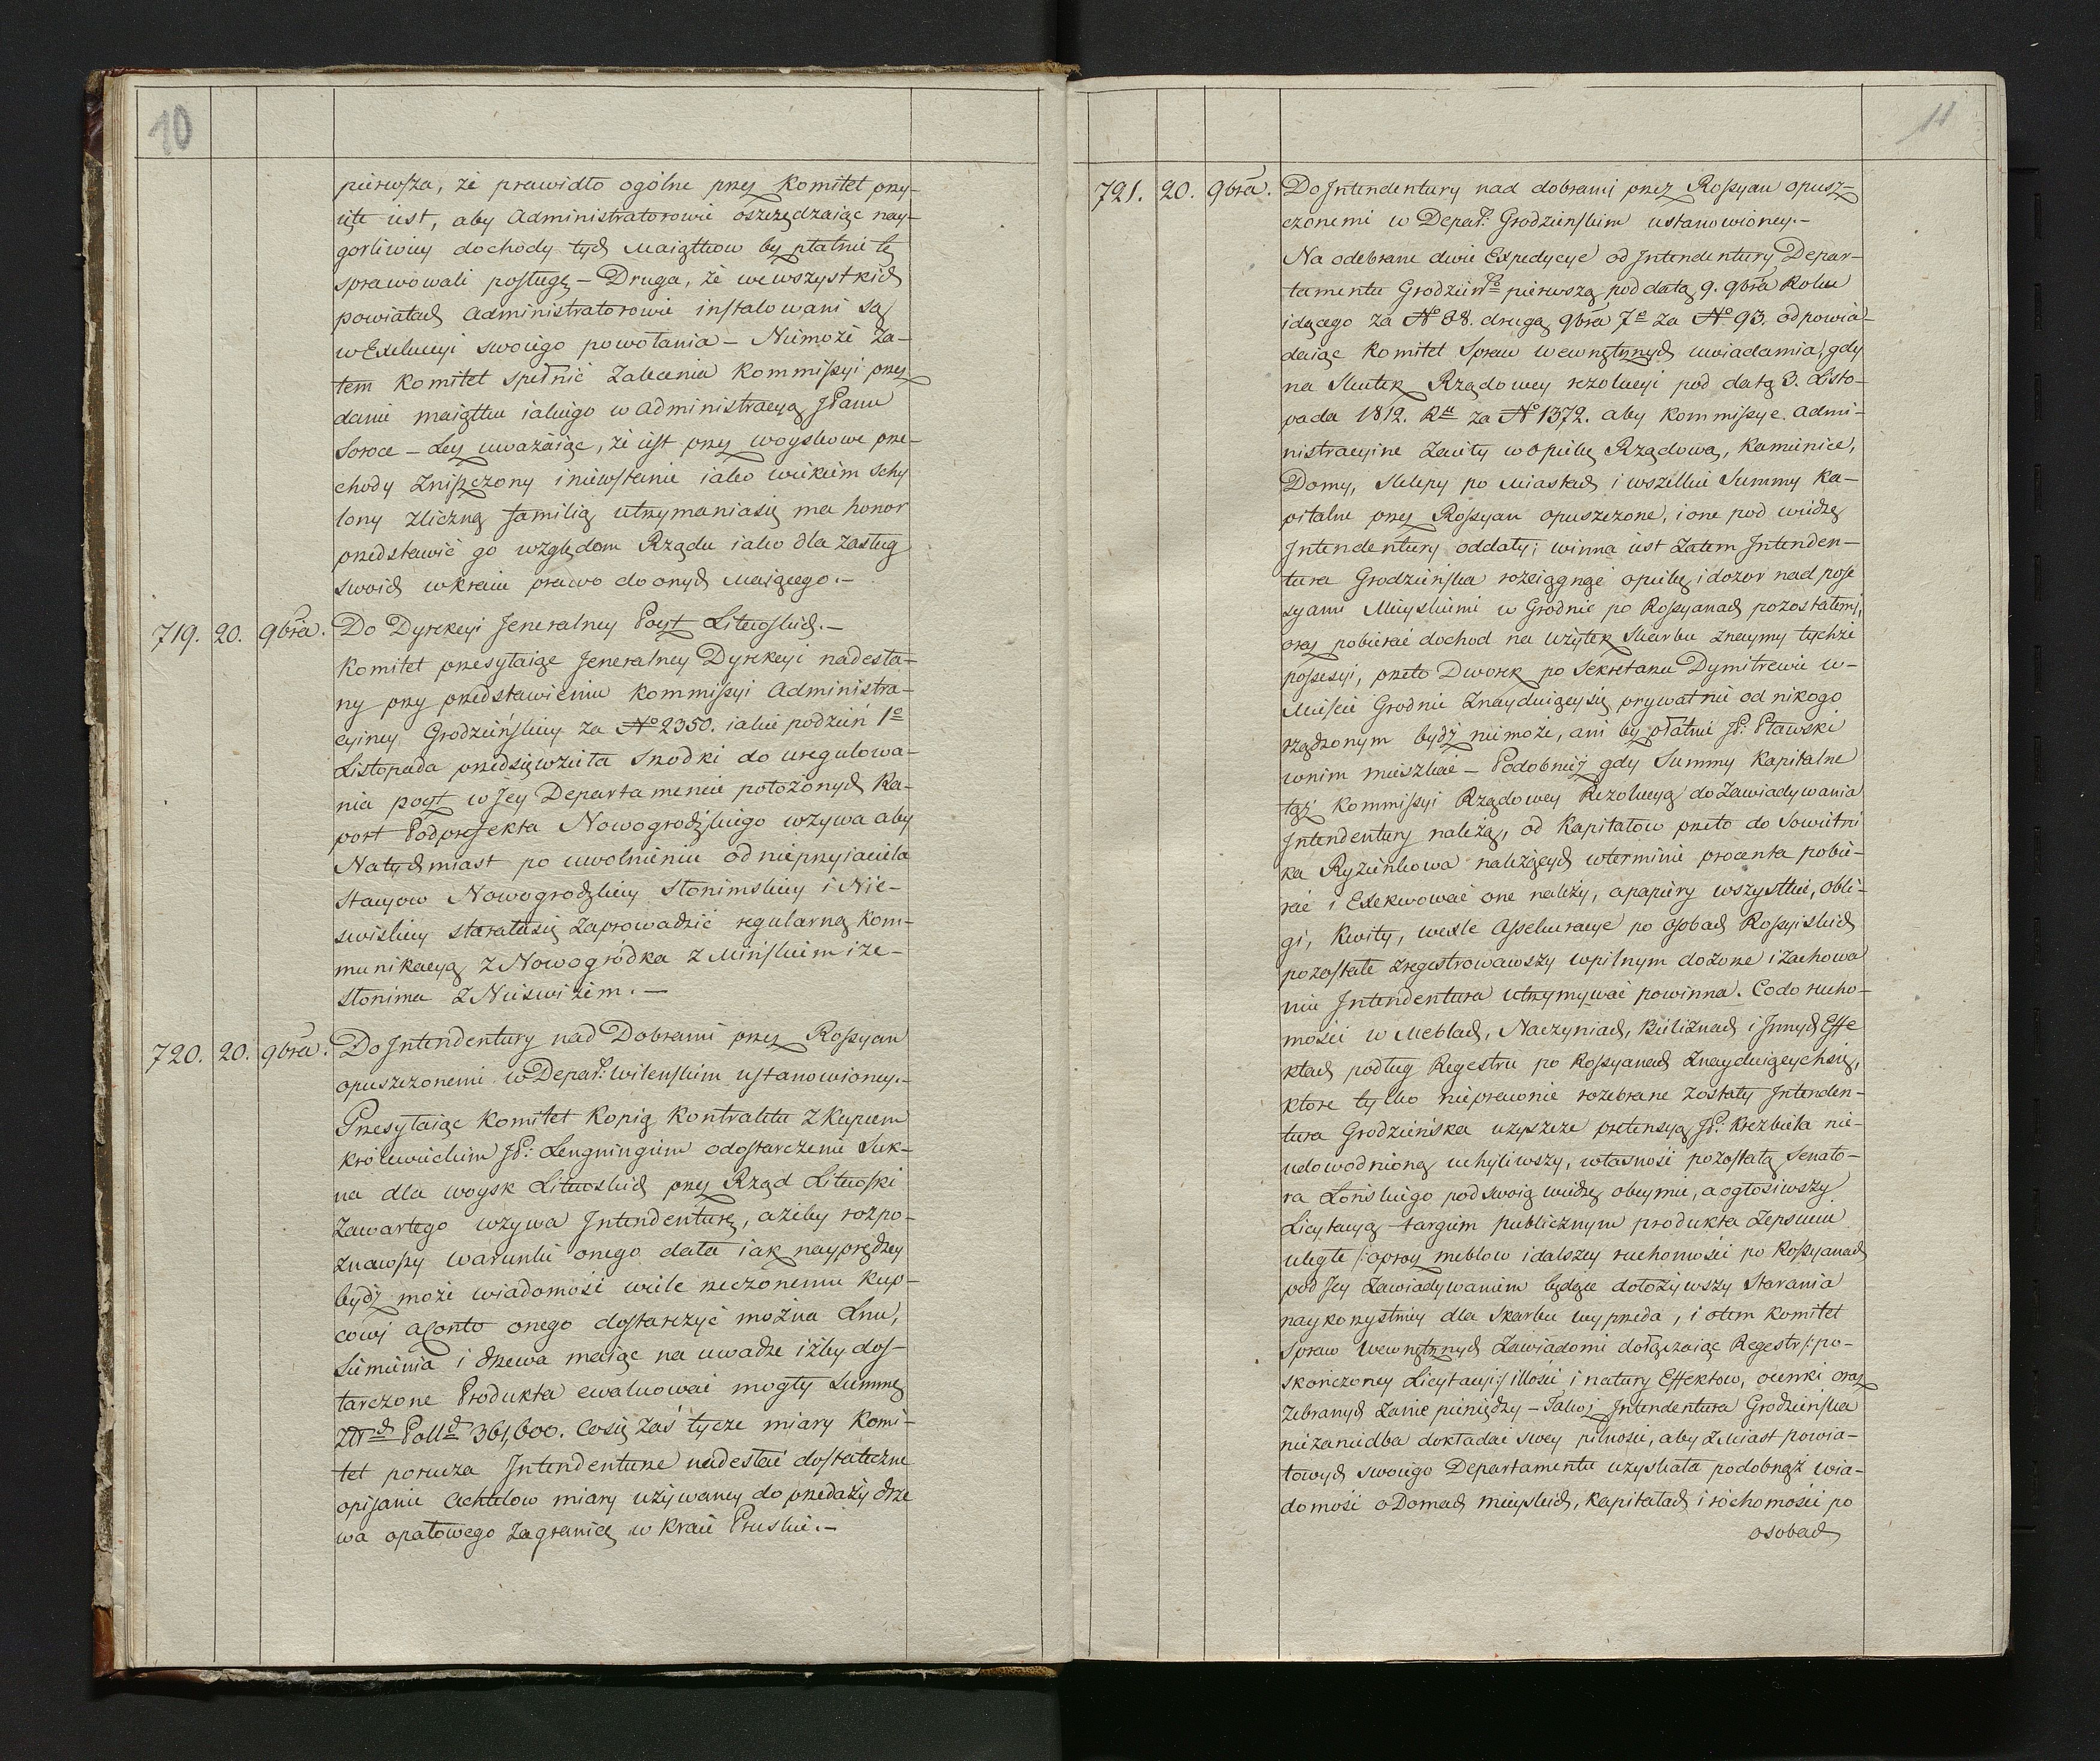 10
pierwsza, że prawidło ogólne przez Komitet przy-
ięte iest, aby Administratorowie oszczędzaiąc nay-
gorliwiey dochody tych Maiątkow bez płatnie tę
sprawowali posługę — Druga, że wewszystkich
powiatach Administratorowie instalowani są
w Exekucyi swoiego powołania — Niemoże Za-
tem Komitet spełnić Zalecenia Kommissyi przez
danie maiątku iakiego w Administracyą JPanu
Soroce — Lecz uważaiąc, że iest przez woyskowe prze-
chody Zniszczony i niewstanie iako wiekiem schy
lony zliczną familią utrzymaniasię ma honor
przedstawić go względom Rządu iako dla zasług
swoich w kraiu prawo do onych Maiącego.—
719. 20. 9bra. Do Dyrekcyi Jeneralney Poczt Litewskich.—
Komitet przesyłaiąc Jeneralney Dyrekcyi nadesła-
ny przy przedstawieniu Kommissyi Administra-
cyiney Grodzieńskiey za No 2350. iakie podzień 1o
Listopada przedsięwzięła srzodki do uregulowa-
nia poczt w Jey Departamencie położonych Ra-
port Podprefekta Nowogrodzkiego wzywa aby
Natychmiast po uwolnieniu od nieprzyiaciela
Stacyow Nowogrodzkiey Słonimskiey i Nie-
swiskiey starałasię Zaprowadzić regularną kom-
munikacyą z Nowogródka z Mińskiem i ze-
Słonima z Nieswiżem.—
720. 20. 9bra. Do Intendentury nad Dobrami przez Rossyan
opuszczonemi w Depar: Wilenskim ustanowioney.—
Przesyłaiąc Komitet Kopią Kontraktu z Kupcem
Królewieckim JP: Lengningiem odostarczenie Suk-
na dla woysk Litewskich przez Rząd Litewski
Zawartego wzywa Intendenturę, ażeby rozpo-
znawszy warunki onego dała iak nayprędzey
bydź może wiadomość wiele rzeczonemu kup-
cowi aConto onego dostarczyć można Lnu,
Siemienia i drzewa maiąc na uwadze iżby dos-
tarczone Produkta ewaluować mogły Summę
Złłch Pollch 361,600. Cosię zaś tycze miary Komi-
tet porucza Intendenturze nadesłać dostateczne
opisanie Achtelow miary używaney do przedaży drze
wa opałowego Zagranicą w Kraie Pruskie.—
11
721. 20. 9bra. Do Intendentury nad dobrami przez Rossyan opusz-
czonemi w Depar: Grodzienskim ustanowioney.—
Na odebrane dwie Expedycye od Intendentury Depar-
tamentu Grodzieńgo pierwszą pod datą 9. 9bra Roku
idącego za No 88. drugą 9bra 7o za No 93. odpowia-
daiąc Komitet Spraw wewnętrznych uwiadamia, gdy
na Skutek Rządowey rezolucyi pod datą 3. Listo-
pada 1812. Rku za No 1372. aby Kommissye Admi-
nistracyine Zaięły w opiekę Rządową, Kamienice,
Domy, Sklepy po Miastach i wszelkie Summy Ka-
pitalne przez Rossyan opuszczone, i one pod wiedzę
Intendentury oddały; winna iest Zatem Intenden-
tura Grodzieńska rozciągnąć opiekę i dozor nad posse
syami Mieyskiemi w Grodnie po Rossyanach pozostałemi,
oraz pobierać dochod na użytek Skarbu z naymy tychże
possesyi, przeto Dworek po Sekretarzu Dymitrewie w-
Mieście Grodnie Znayduiącysię prywatnie od nikogo
rządzonym bydź niemoże, ani bez płatnie JP: Pławski
wnim mieszkać — Podobnież gdy Summy Kapitalne
tąż Kommissyi Rządowey Rezolucyą do Zawiadywania
Intendentury należą, od Kapitałow przeto do Sowietni
ka Ryżenkowa należących wterminie procenta pobie-
rać i Exekwować one należy, a papiery wszystkie, obli-
gi, Kwity, wexle Assekuracye po osobach Rossyiskich
pozostałe zregestrowawszy wpilnym dozorze i Zachowa
niu Intendentura utrzymywać powinna. Codo rucho-
mości w Meblach, Naczyniach, Bieliznach i Jnnych Effe
ktach podług Regestru po Rossyanach Znayduiącychsię,
ktore tylko nieprawnie rozebrane zostały Intenden-
tura Grodzieńska uzyszcze pretensyą JP: Krezbieła nie-
udowodnioną uchyliwszy, własność pozostałą Senato-
ra Łońskiego pod swoią wiedzę obeymie, a ogłosiwszy
Licytacyą targiem publicznym produkta Zepsuciu
uległe /:oprocz meblow i dalszey ruchomości po Rossyanach
pod Jey Zawiadywaniem będące dołożywszy Starania
naykorzystniey dla Skarbu wyprzeda, i otem Komitet
Spraw Wewnętrznych Zawiadomi dołączaiąc Regestr /:po-
skończoney Licytacyi:/ illości i natury Effektow, ocenki oraz
Zebranych Zanie pieniędzy — Takoż Intendentura Grodzieńska
niezaniedba dokładać swey pilności, aby z Miast powia-
towych swoiego Departamentu uzyskała podobnąż wia-
domość o Domach mieyskich, Kapitałach i rochomości po
osobach